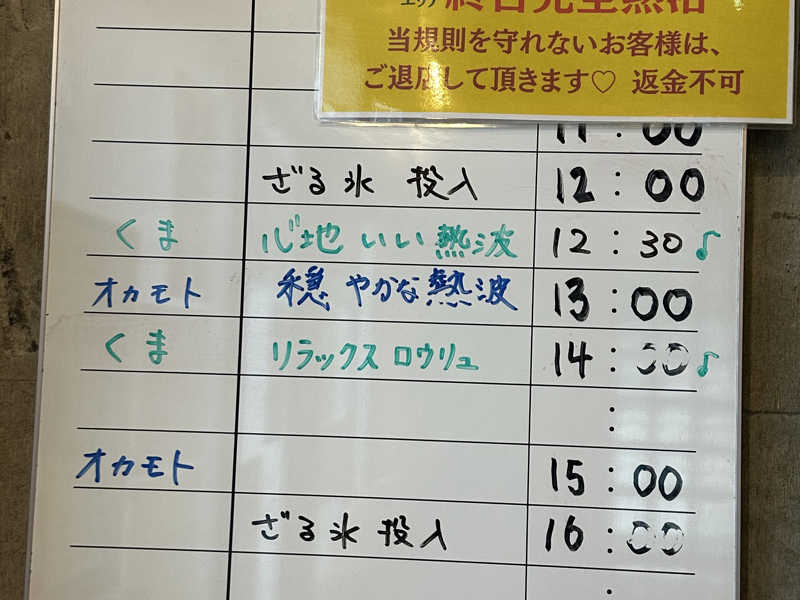 当規則を守れないお客様は、
ご退店して頂きます♡ 返金不可
11:00
ざる氷 投入 12:00
くま 心地いい熱波 12:30♪
オカモト 穏やかな熱波 13:00
くま リラックスロウリュ 14:00♪
:
オカモト 15:00
ざる氷 投入 16:00